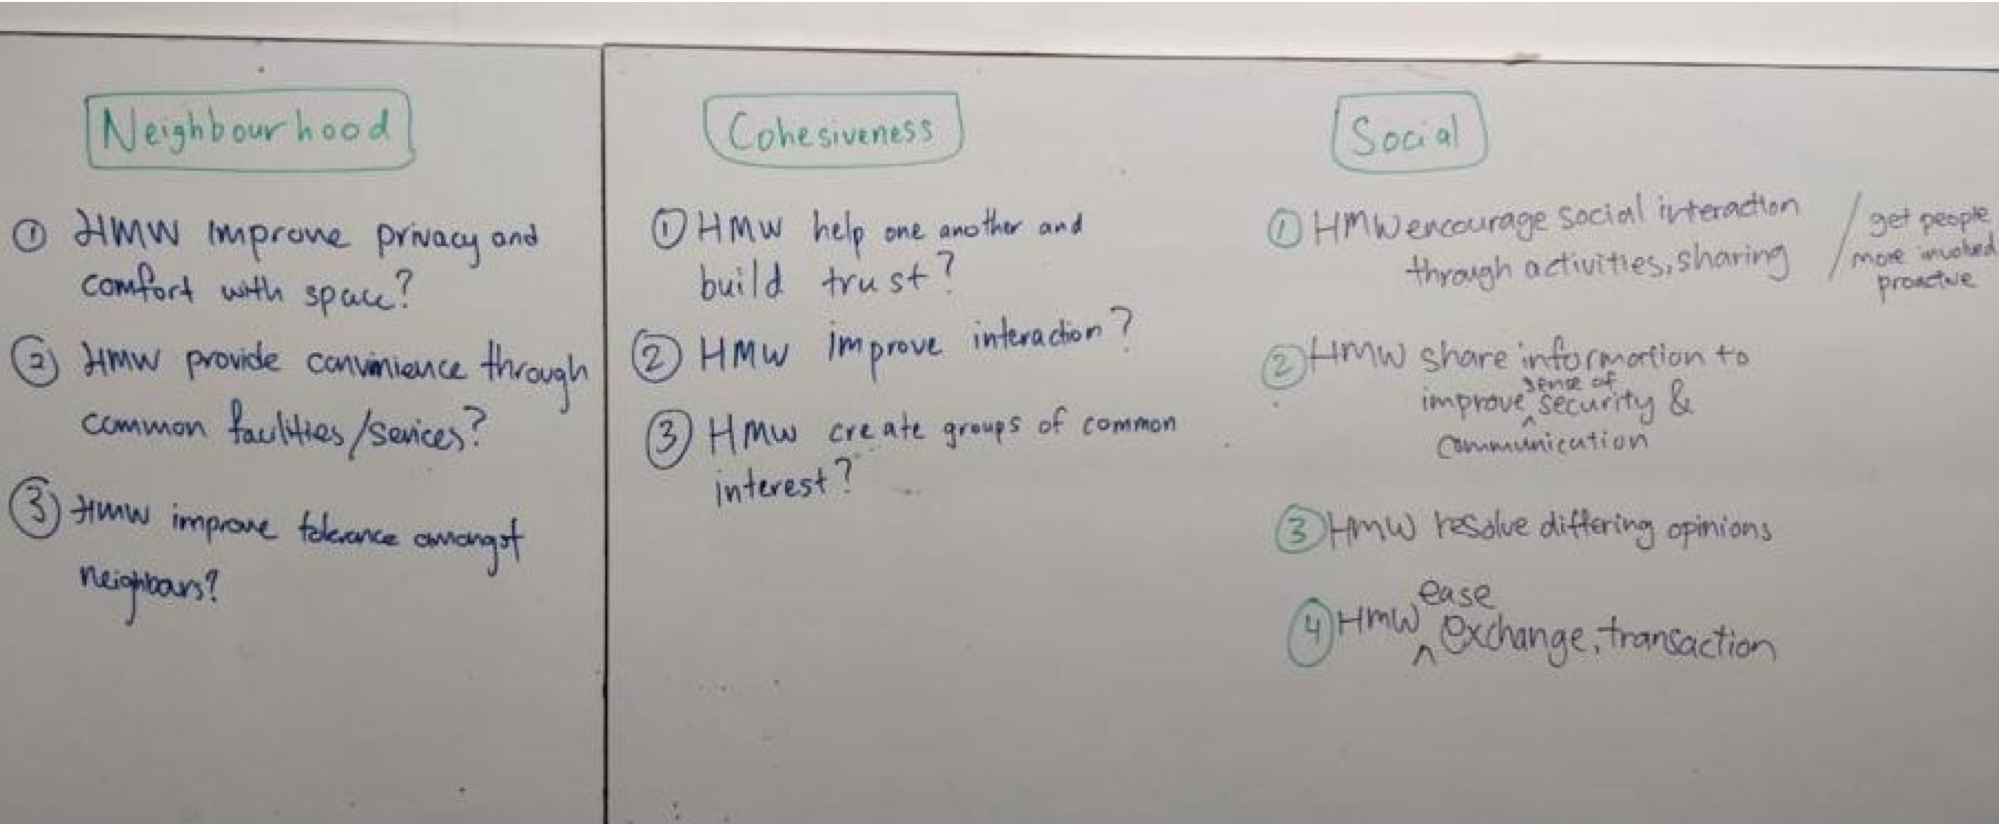 Neighbourhood
① HMW improve privacy and
comfort with space?
② HMW provide convinience through
common facilities/sevices?
③ HMW improve tolerance amongst
neighbours?
Cohesiveness
① HMW help one another and
build trust?
② HMW improve interaction?
③ HMW create groups of common
interest?
Social
① HMW encourage social interaction
through activities, sharing
/ get people
more involved
proactive
② HMW share information to
improve sense of security &
communication
③ HMW resolve differing opinions
④ HMW ease exchange, transaction